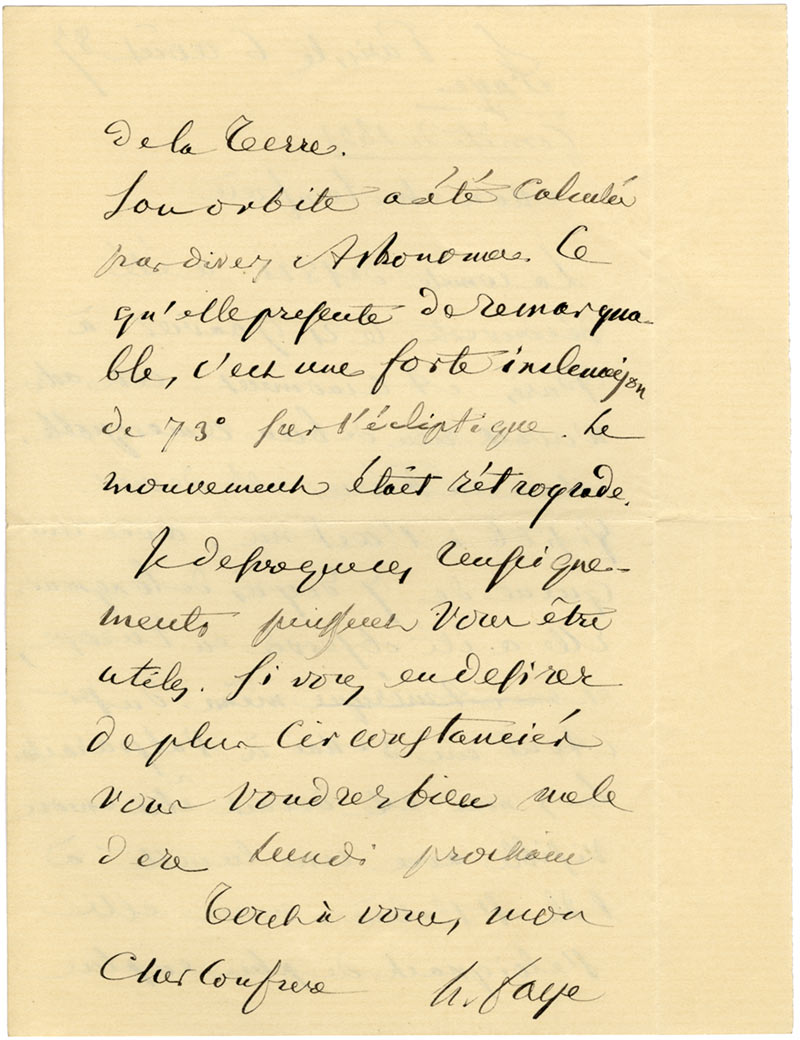 de la Terre.
Son orbite a été calculée
par divers Astronomes. Ce
qu'elle présente de remarqua-
ble, c'est une forte inclinaison
de 73° sur l'écliptique. Le
mouvement était rétrograde.
Je desire que ces renseigne-
ments puissent vous être
utiles. Si vous en desirez
de plus circonstanciés
vous voudrez bien me le
dire lundi prochain
Tout à vous, mon
Cher Confrère
h. faye